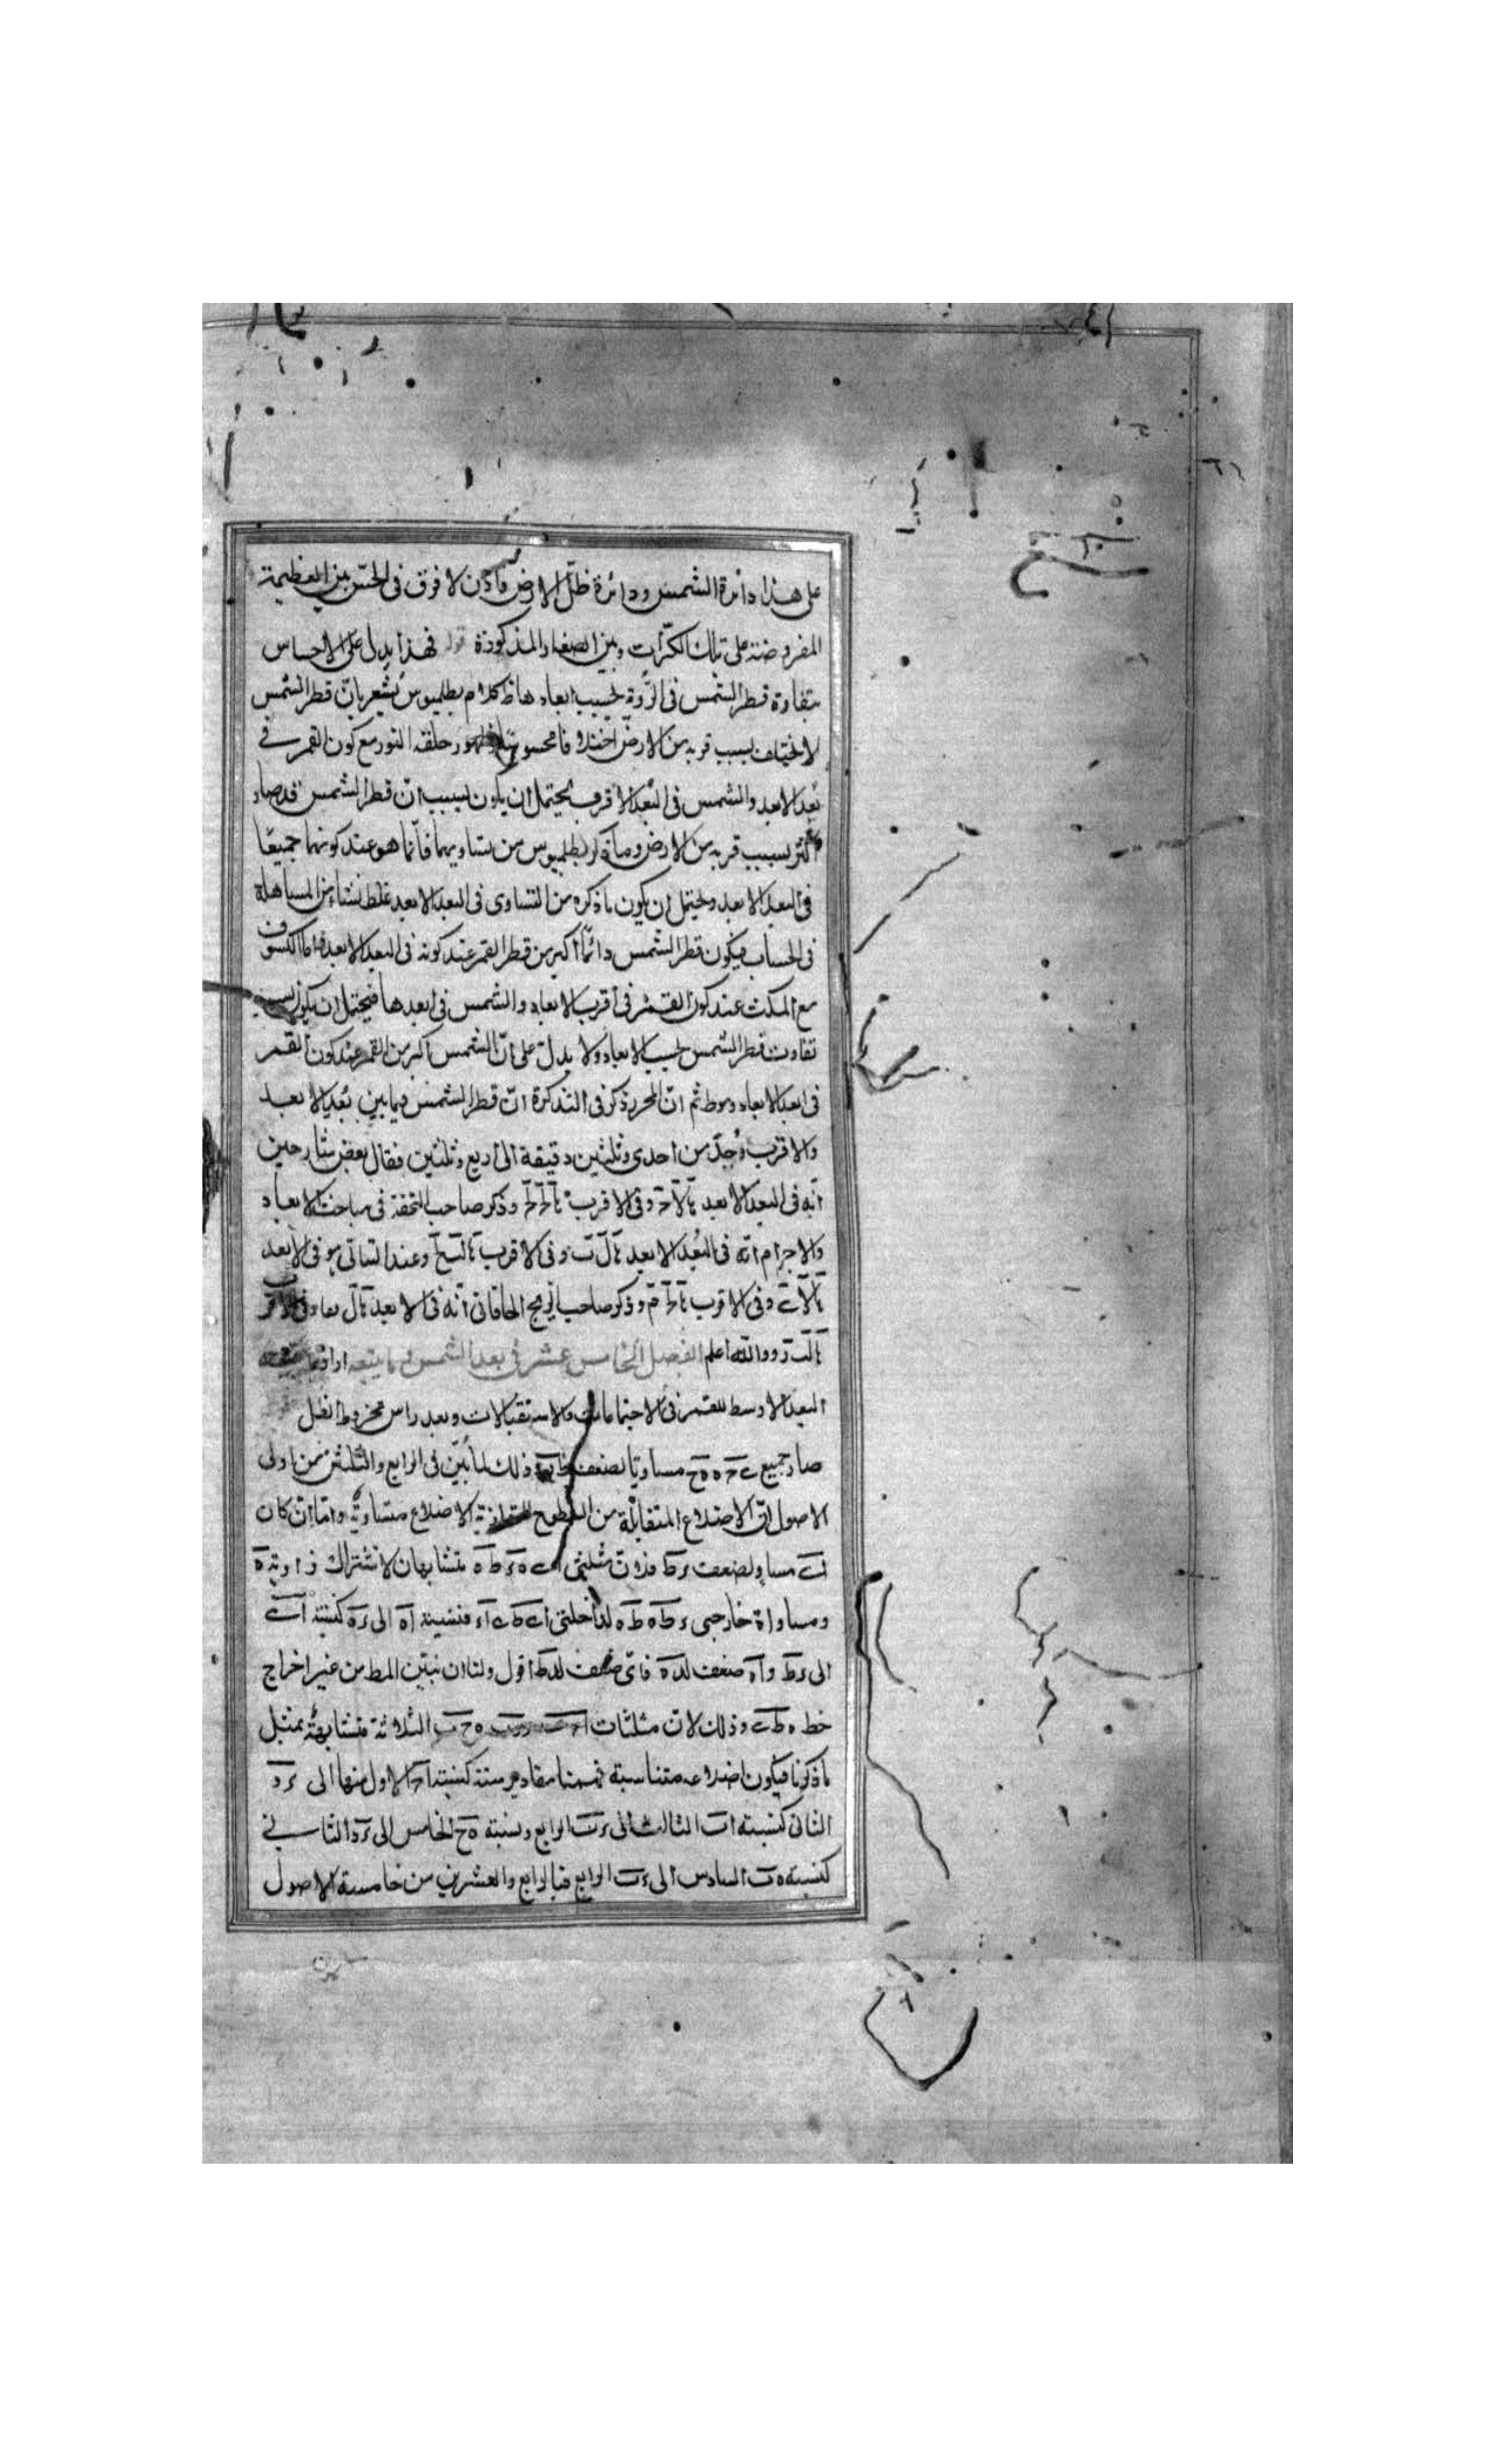 على هذا دائرة الشمس ودائرة ظل الارض فاذن لا فرق فى الحسّ بين العظيمة
المفروضة على تلك الكرات وبين الصغار المذكورة قوله فهذا يدل على الاحساس
بتفاوة قطر الشمس فى الرؤية بحسب ابعادها ظ كلام بطلميوس يشعر بانّ قطر الشمس
لا يختلف بسبب قربه من الارض اختلافا محسوسا وظهور حلقة النور مع كون القمر فى
بُعد الابعد والشمس فى البُعد الاقرب يحتمل ان يكون بسبب انّ قطر الشمس قد صار
اكثر بسبب قربه من الارض وما ذكر بطلميوس من تساويهما فانّما هو عند كونهما جميعًا
فى البعد الابعد ويحتمل ان يكون ما ذكره من التساوى فى البعد الابعد غلط نشاء من المساهلة
فى الحساب فيكون قطر الشمس دائمًا اكبر من قطر القمر عند كونه فى البعد الابعد واما الكسوف
مع المكث عند كون القمر فى اقرب الابعاد والشمس فى ابعدها فيحتمل ان يكون بسبب
تفاوت قطر الشمس بحسب الابعاد ولا يدل على انّ الشمس اكبر من القمر عند كون القمر
فى ابعد الابعاد وسط ثم انّ المحرر ذكر فى التذكرة انّ قطر الشمس فيما بين بُعديه الابعد
والاقرب وُجد من احدى وثلثين دقيقة الى اربع وثلثين فقال بعض شارحين
انّه فى البعد الابعد وفى الاقرب وذكر صاحب التحفة فى مباحث الابعاد
والاجرام انّه فى البُعد الابعد وفى الاقرب وعند التبانى هو فى الابعد
وفى الاقرب وذكر صاحب الزيج الخاقانى انّه فى الابعد
والله اعلم الفصل الخامس عشر فى بعد الشمس وما يتبعه
البعد الاوسط للقمر فى الاجتماعات والاستقبالات وبعد راس مخروط الظل
صار جميع مساويا لضعف وذلك لما بُيّن فى الرابع والثلثين من اولى
الاصول انّ الاضلاع المتقابلة من السطوح المتوازية الاضلاع متساويةٌ وامّا ان كان
مساوٍ لضعف فلان مثلثى متشابهان لاشتراك زاوية ه
ومساواة خارجى لداخلتى فنسبة اه الى كنسبة
الى وآه ضعف فاى ضعف اقول ولنا ان نبيّن المط من غير اخراج
خط وذلك لانّ مثلثات الثلاثة متشابهةٌ بمثل
ما ذكرنا فيكون اضلاعه متناسبة فهيهنا مقادير ستة كنسبة الاول منها الى
الثانى كنسبة اب الثالث الى الرابع ونسبة ه ح الخامس الى الثانى
كنسبة ه ب السادس الى الرابع فبالرابع والعشرين من خامسة الاصول